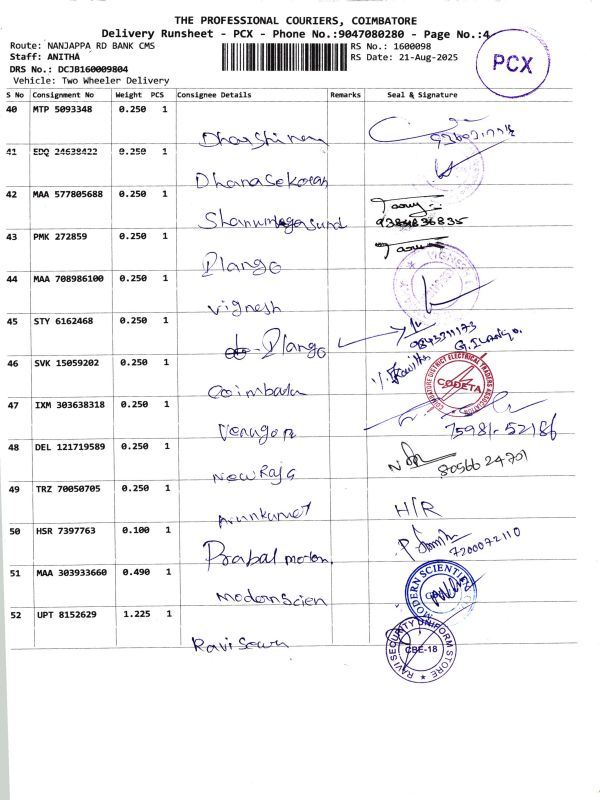 THE PROFESSIONAL COURIERS, COIMBATORE
Delivery Runsheet - PCX - Phone No.:9047080280 - Page No.:4
Route: NANJAPPA RD BANK CMS
RS No.: 1600098
Staff: ANITHA
RS Date: 21-Aug-2025
DRS No.: DCJB160009804
Vehicle: Two Wheeler Delivery
PCX
S No Consignment No Weight PCS Consignee Details Remarks Seal & Signature
40 MTP 5093348 0.250 1
41 EDQ 24638422 0.250 1
Dhanasekaran
42 MAA 577805688 0.250 1
9384836835
43 PMK 272859 0.250 1
Ilango
44 MAA 708986100 0.250 1
Vignesh
45 STY 6162468 0.250 1
Ilango
9843311173
G. Ilango.
46 SVK 15059202 0.250 1
COIMBATORE DISTRICT ELECTRICAL TRADERS ASSOCIATION
CODETA
47 IXM 303638318 0.250 1
Venugop
75981-52186
48 DEL 121719589 0.250 1
New Raja
8056624701
49 TRZ 70050705 0.250 1
Arunkumar
H/R
50 HSR 7397763 0.100 1
Prabal modon.
7200072110
51 MAA 303933660 0.490 1
modornScien
MODERN SCIENTIFIC
52 UPT 8152629 1.225 1
Ravi Secur
RAVI SECURITY UNIFORM STORE
CBE-18